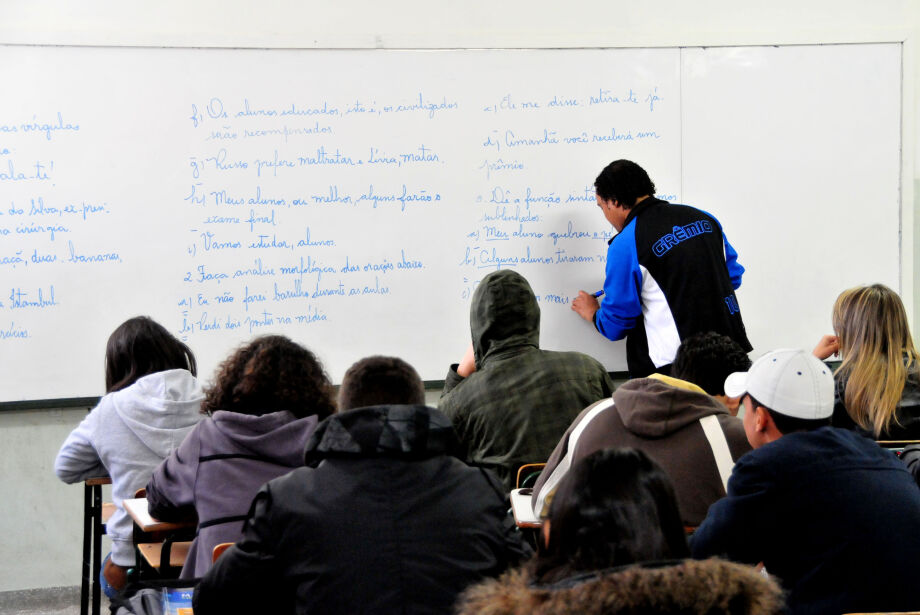 as vírgulas
o:
ala-te!
da Silva, ex-presi-
a cirúrgia.
açã, duas bananas
Istambul
rcícios.
f) Os alunos educados, isto é, os civilizados
serão recompensados.
g) Russo prefere maltratar e Lívia, matar.
h) Meus alunos, ou melhor, alguns farão o
exame final.
i) Vamos estudar, alunos.
2. Faça análise morfológica das orações abaixo.
a) Eu não farei barulho durante as aulas.
b) Perdi dois pontos na média.
c) Ele me disse: retira-te já.
d) Amanhã você receberá um
prêmio.
3. Dê a função sintá mos
sublinhados.
a) Meu aluno quebrou o
b) Alguns alunos tiraram
c) mais
GRÊMIO
10